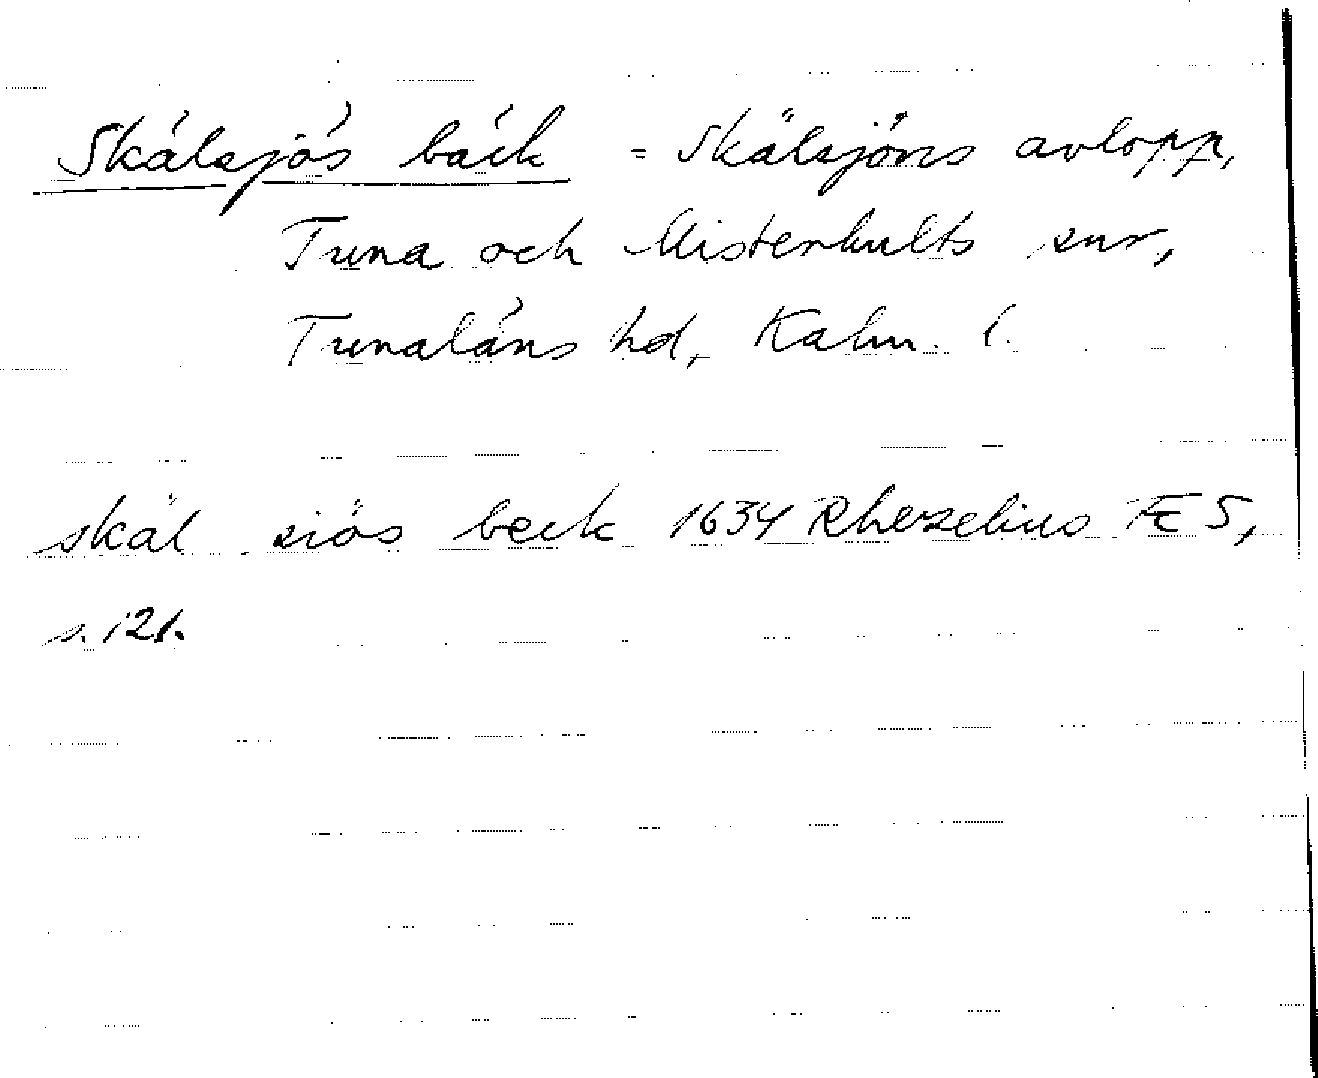 Skälsjös bäck = Skälsjöns avlopp,
Tuna och Misterhults snr,
Tunaläns hd, Kalm. l.
skäl siös beck 1634 Rhezelius Fc 5,
s. 121.